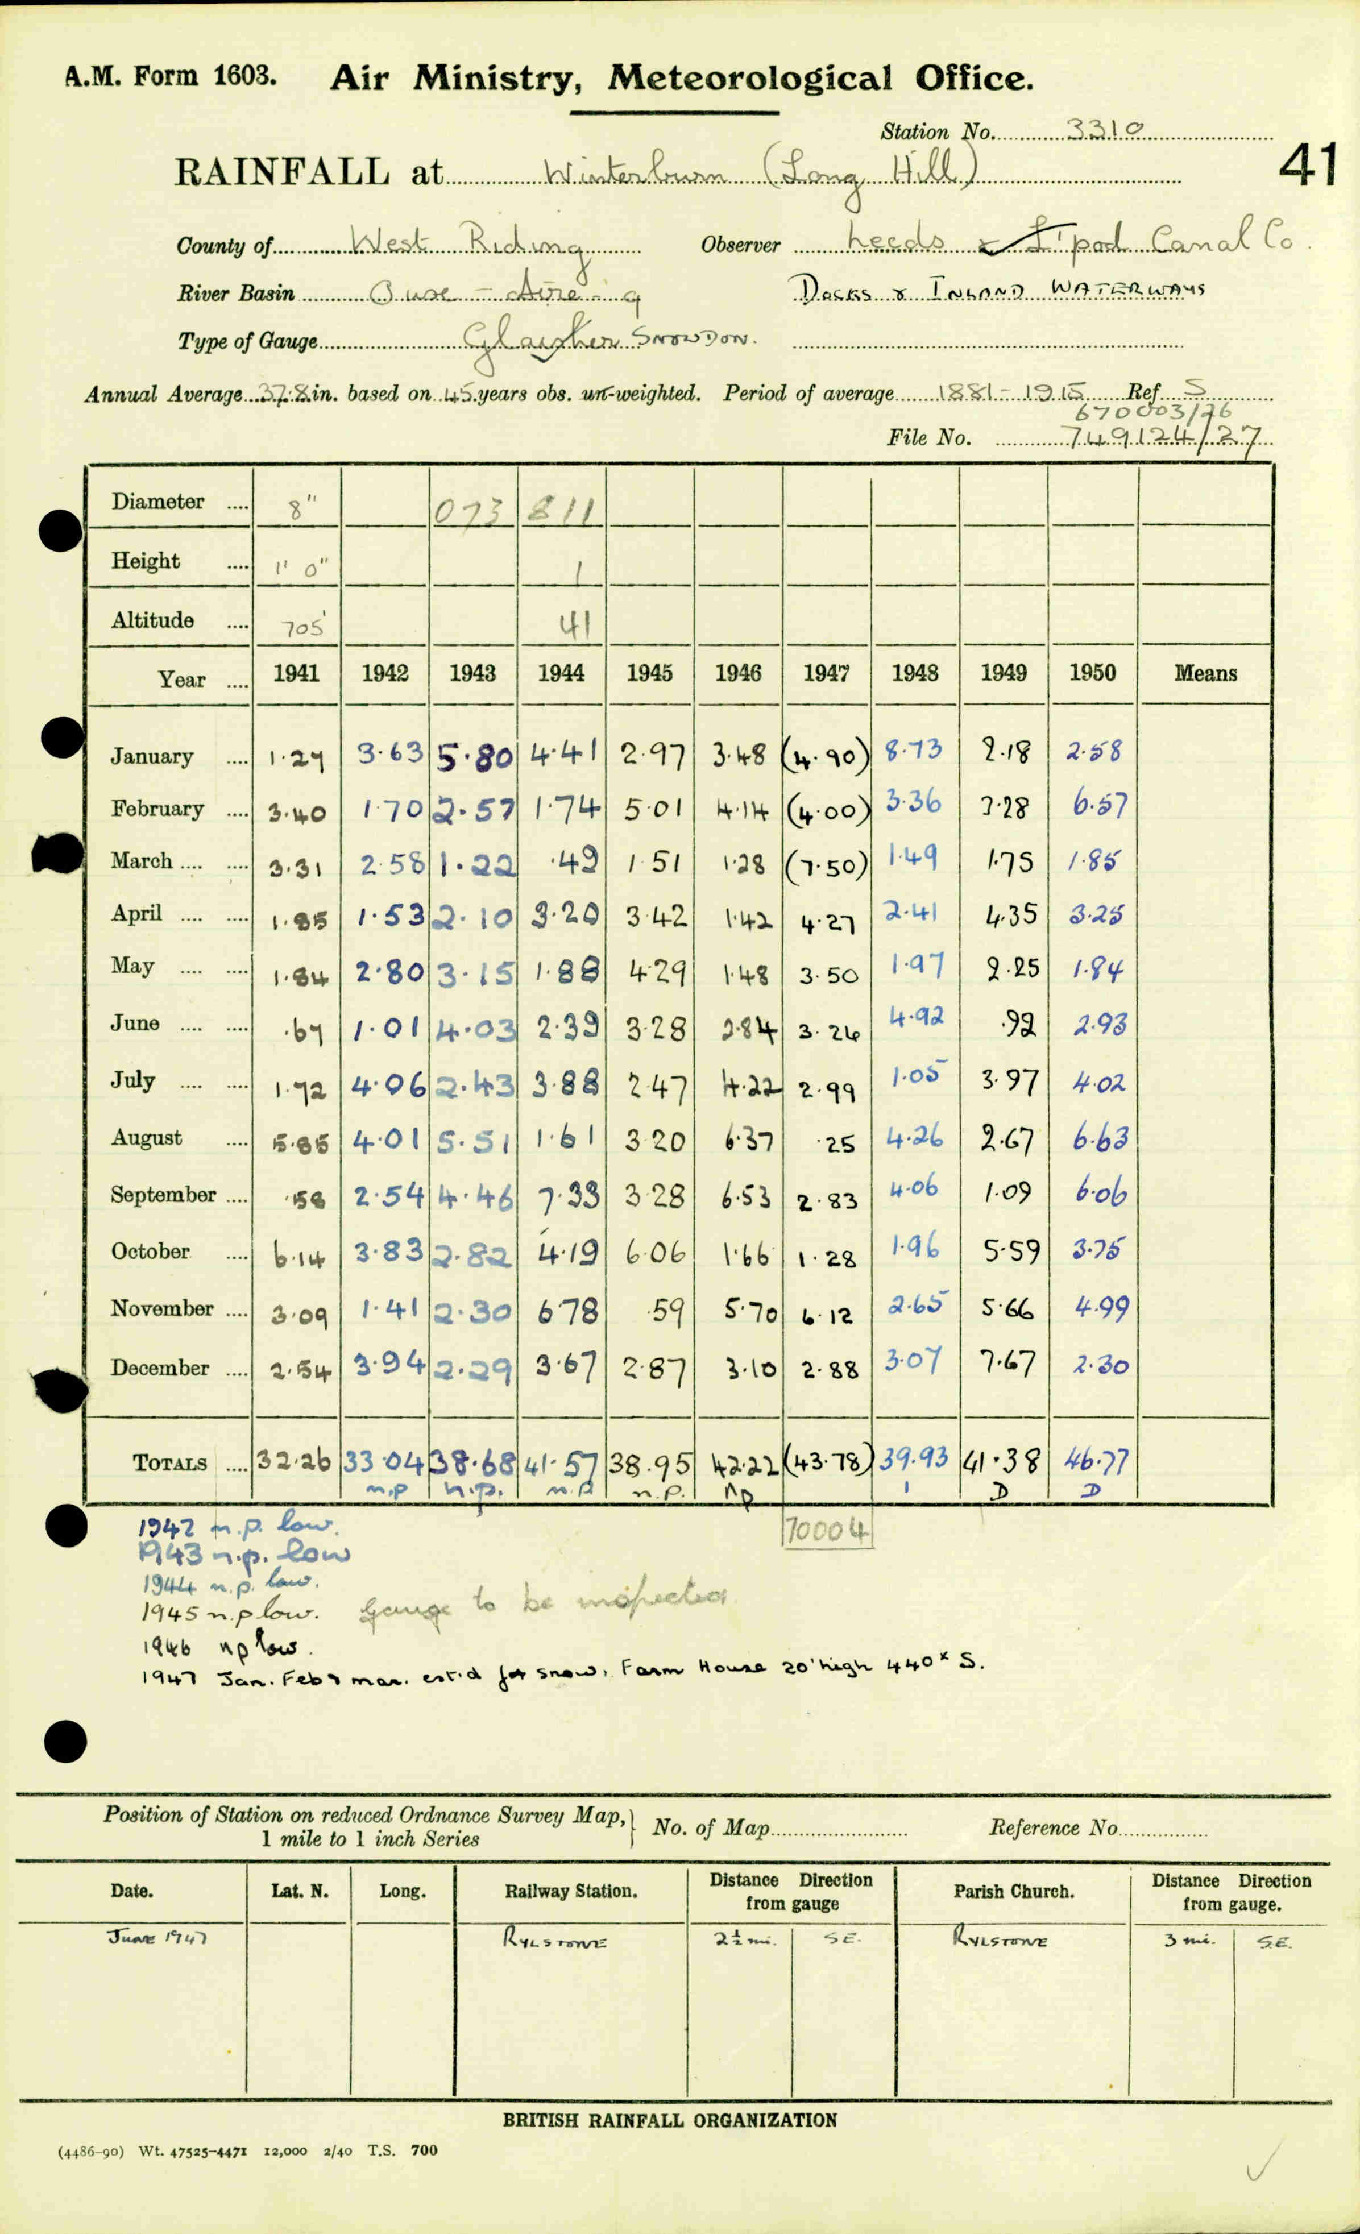 A.M. Form 1603. Air Ministry, Meteorological Office.
Station No. 3310
41
RAINFALL at Winterburn (Long Hill)
County of West Riding Observer Leeds & L'pool Canal Co.
River Basin Ouse - Aire - 9 DOCKS & INLAND WATERWAYS
Type of Gauge Glaisher SNOWDON.
Annual Average 37.8 in. based on 45 years obs. un-weighted. Period of average 1881-1915 Ref S
670003/26
File No. 749124/27
Diameter .... 8" 073 811
Height .... 1' 0" 1
Altitude .... 705' 41
Year .... 1941 1942 1943 1944 1945 1946 1947 1948 1949 1950 Means
January .... 1.27 3.63 5.80 4.41 2.97 3.48 (4.90) 8.73 2.18 2.58
February .... 3.40 1.70 2.57 1.74 5.01 4.14 (4.00) 3.36 3.28 6.57
March .... .... 3.31 2.58 1.22 .49 1.51 1.28 (7.50) 1.49 1.75 1.85
April .... .... 1.85 1.53 2.10 3.20 3.42 1.42 4.27 2.41 4.35 3.25
May .... .... 1.84 2.80 3.15 1.88 4.29 1.48 3.50 1.97 2.25 1.84
June .... .... .67 1.01 4.03 2.39 3.28 2.84 3.26 4.92 .92 2.93
July .... .... 1.72 4.06 2.43 3.88 2.47 4.22 2.99 1.05 3.97 4.02
August .... 5.85 4.01 5.51 1.61 3.20 6.37 .25 4.26 2.67 6.63
September .... .58 2.54 4.46 7.33 3.28 6.53 2.83 4.06 1.09 6.06
October .... 6.14 3.83 2.82 4.19 6.06 1.66 1.28 1.96 5.59 3.75
November .... 3.09 1.41 2.30 6.78 .59 5.70 6.12 2.65 5.66 4.99
December .... 2.54 3.94 2.29 3.67 2.87 3.10 2.88 3.07 7.67 2.30
TOTALS .... 32.26 33.04 38.68 41.57 38.95 42.22 (43.78) 39.93 41.38 46.77
n.p n.p. n.p n.p. np 1 D D
70004
1942 n.p. low.
1943 n.p. low
1944 n.p. low.
1945 n.p low. Gauge to be inspected
1946 np low.
1947 Jan. Feb & Mar. est'd for snow. Farm House 20' high 440x S.
Position of Station on reduced Ordnance Survey Map, 1 mile to 1 inch Series } No. of Map Reference No
Date. Lat. N. Long. Railway Station. Distance Direction from gauge Parish Church. Distance Direction from gauge.
JUNE 1947 RYLSTONE 2½ mi. S.E. RYLSTONE 3 mi. S.E.
BRITISH RAINFALL ORGANIZATION
(4486-90) Wt. 47525-4471 12,000 2/40 T.S. 700